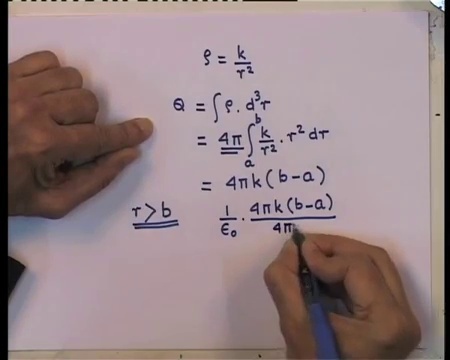 ρ = k/r²
Q = ∫ρ. d³r
= 4π ∫ₐᵇ k/r² · r² dr
= 4πk (b-a)
r > b 1/ε₀ · 4πk(b-a)/4π